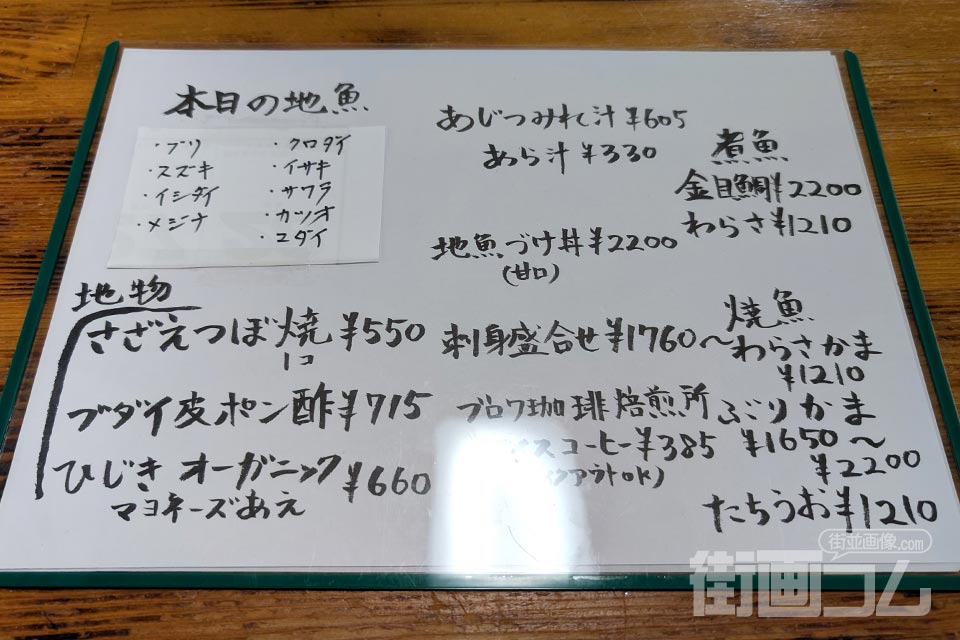 本日の地魚
・ブリ
・スズキ
・イシダイ
・メジナ
・クロダイ
・イサキ
・サワラ
・カツオ
・コダイ
あじつみれ汁¥605
あら汁¥330
地魚づけ丼¥2200
(甘口)
煮魚
金目鯛¥2200
わらさ¥1210
地物
さざえつぼ焼¥550
1コ
ブダイ皮ポン酢¥715
ひじきオーガニック
マヨネーズあえ
¥660
刺身盛合せ¥1760〜
ブロワ珈琲焙煎所
アイスコーヒー¥385
クアウトOK)
焼魚
わらさかま
¥1210
ぶりかま
¥1650〜
¥2200
たちうお¥1210
街並画像.com
街画コム